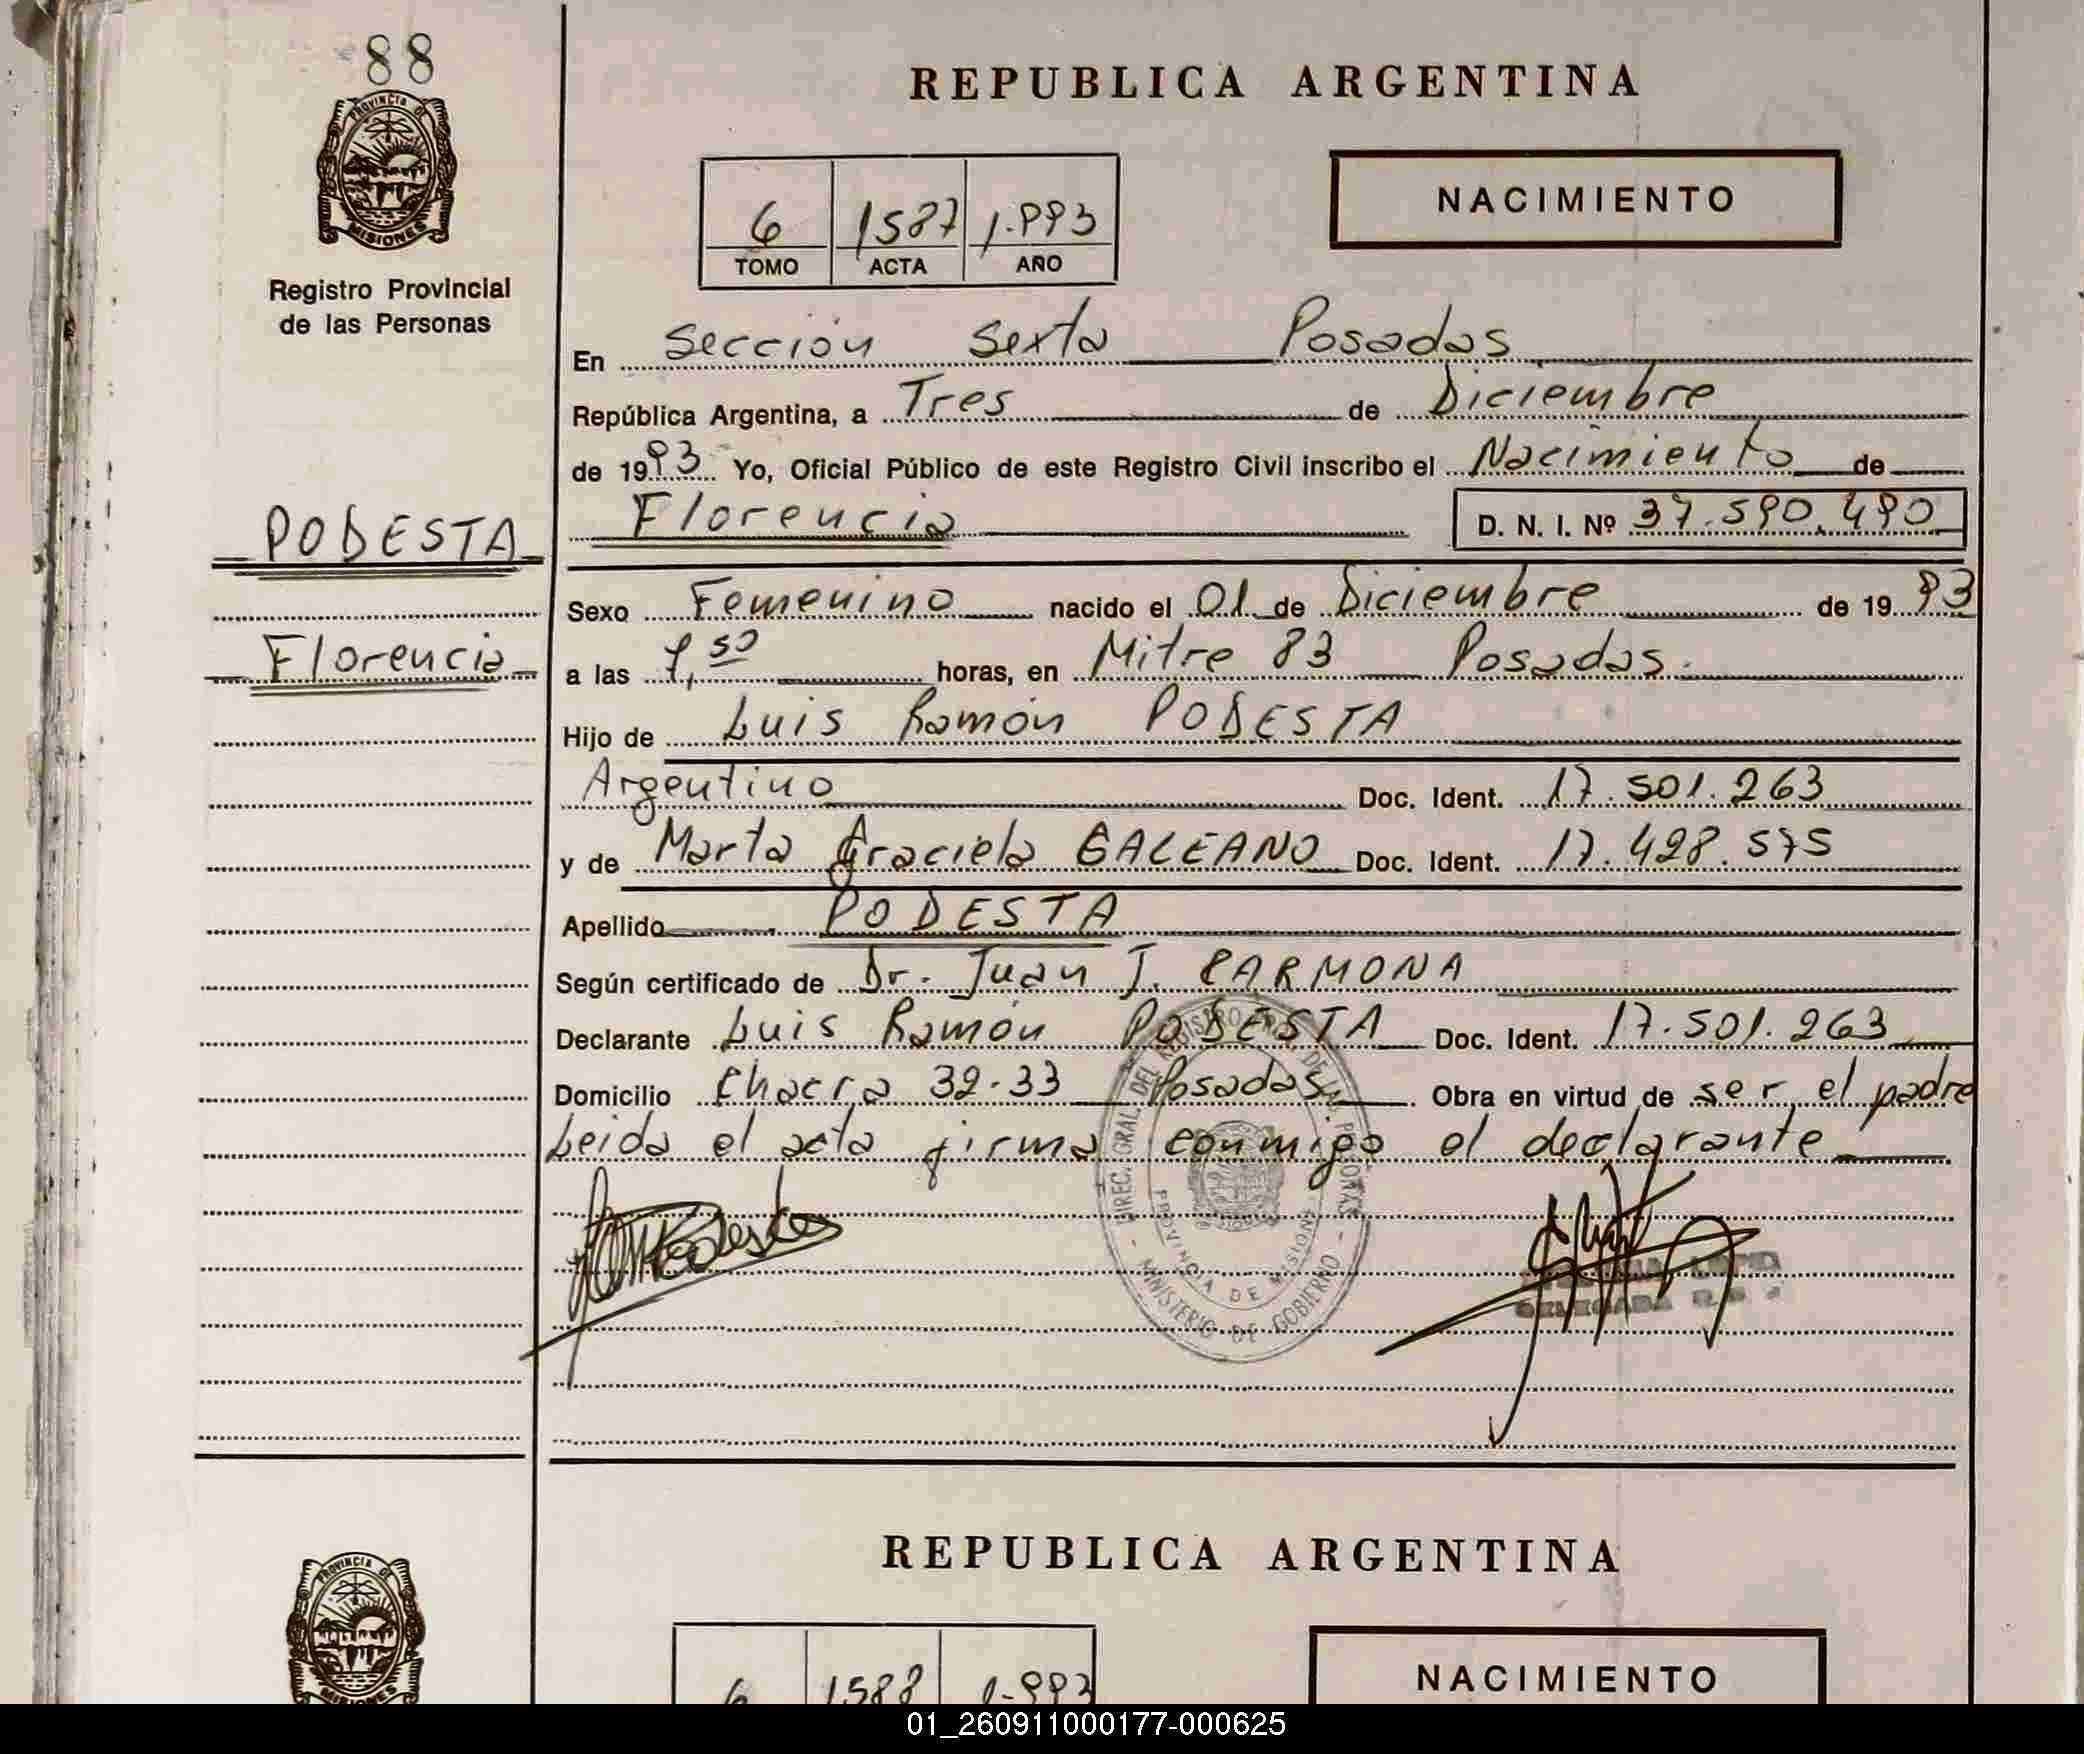 88
REPUBLICA ARGENTINA
PROVINCIA DE
MISIONES
Registro Provincial
de las Personas
6 1587 1.993
TOMO ACTA AÑO
NACIMIENTO
En Sección Sexta Posadas
República Argentina, a Tres de Diciembre
de 1993 Yo, Oficial Público de este Registro Civil inscribo el Nacimiento de
Florencia D. N. I. Nº 37.590.490
PODESTA
Sexo Femenino nacido el 01 de Diciembre de 1993
Florencia
a las 9,50 horas, en Mitre 83 Posadas.
Hijo de Luis Ramón PODESTA
Argentino Doc. Ident. 17.501.263
y de Marta Graciela GALEANO Doc. Ident. 17.428.575
Apellido PODESTA
Según certificado de Dr. Juan J. CARMONA
Declarante Luis Ramón PODESTA Doc. Ident. 17.501.263
Domicilio Chacra 32-33 Posadas Obra en virtud de ser el padre
Leida el acta firma conmigo el declarante
PROVINCIA DE MISIONES
MINISTERIO DE GOBIERNO
DELEGADA
REPUBLICA ARGENTINA
PROVINCIA DE
MISIONES
6 1588 1.993
NACIMIENTO
01_260911000177-000625